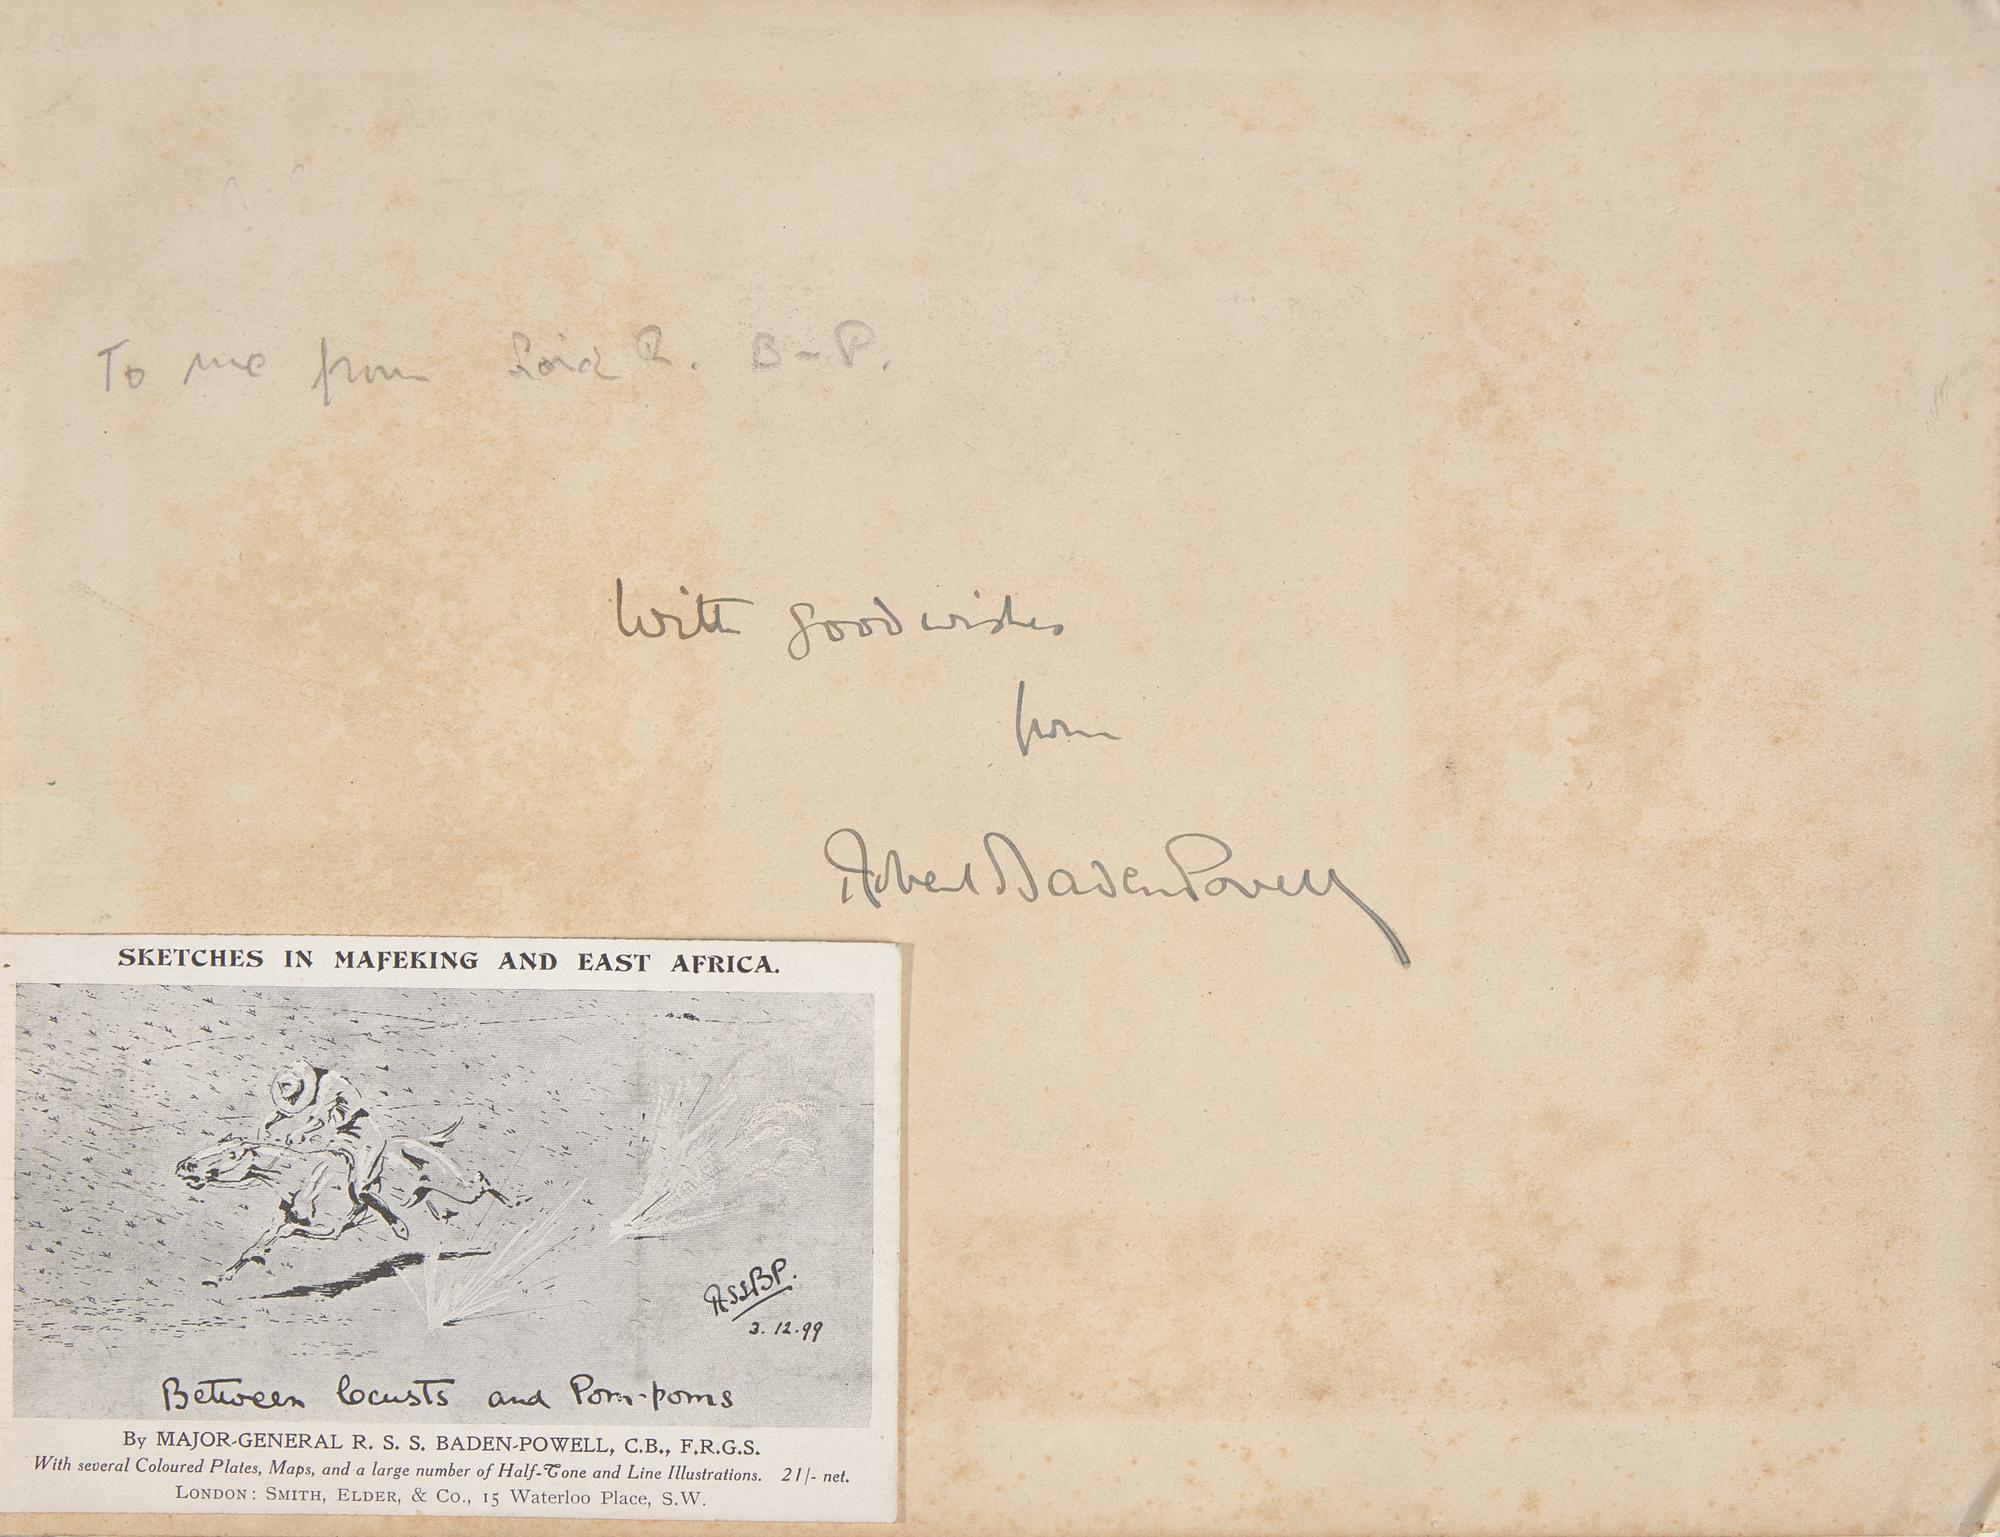 To me from Lord R. B-P.
With good wishes
from
Robert Baden Powell
SKETCHES IN MAFEKING AND EAST AFRICA.
RSSBP.
3.12.99
Between locusts and Pom-poms
By MAJOR-GENERAL R. S. S. BADEN-POWELL, C.B., F.R.G.S.
With several Coloured Plates, Maps, and a large number of Half-Tone and Line Illustrations. 21/- net.
LONDON: SMITH, ELDER, & CO., 15 Waterloo Place, S.W.